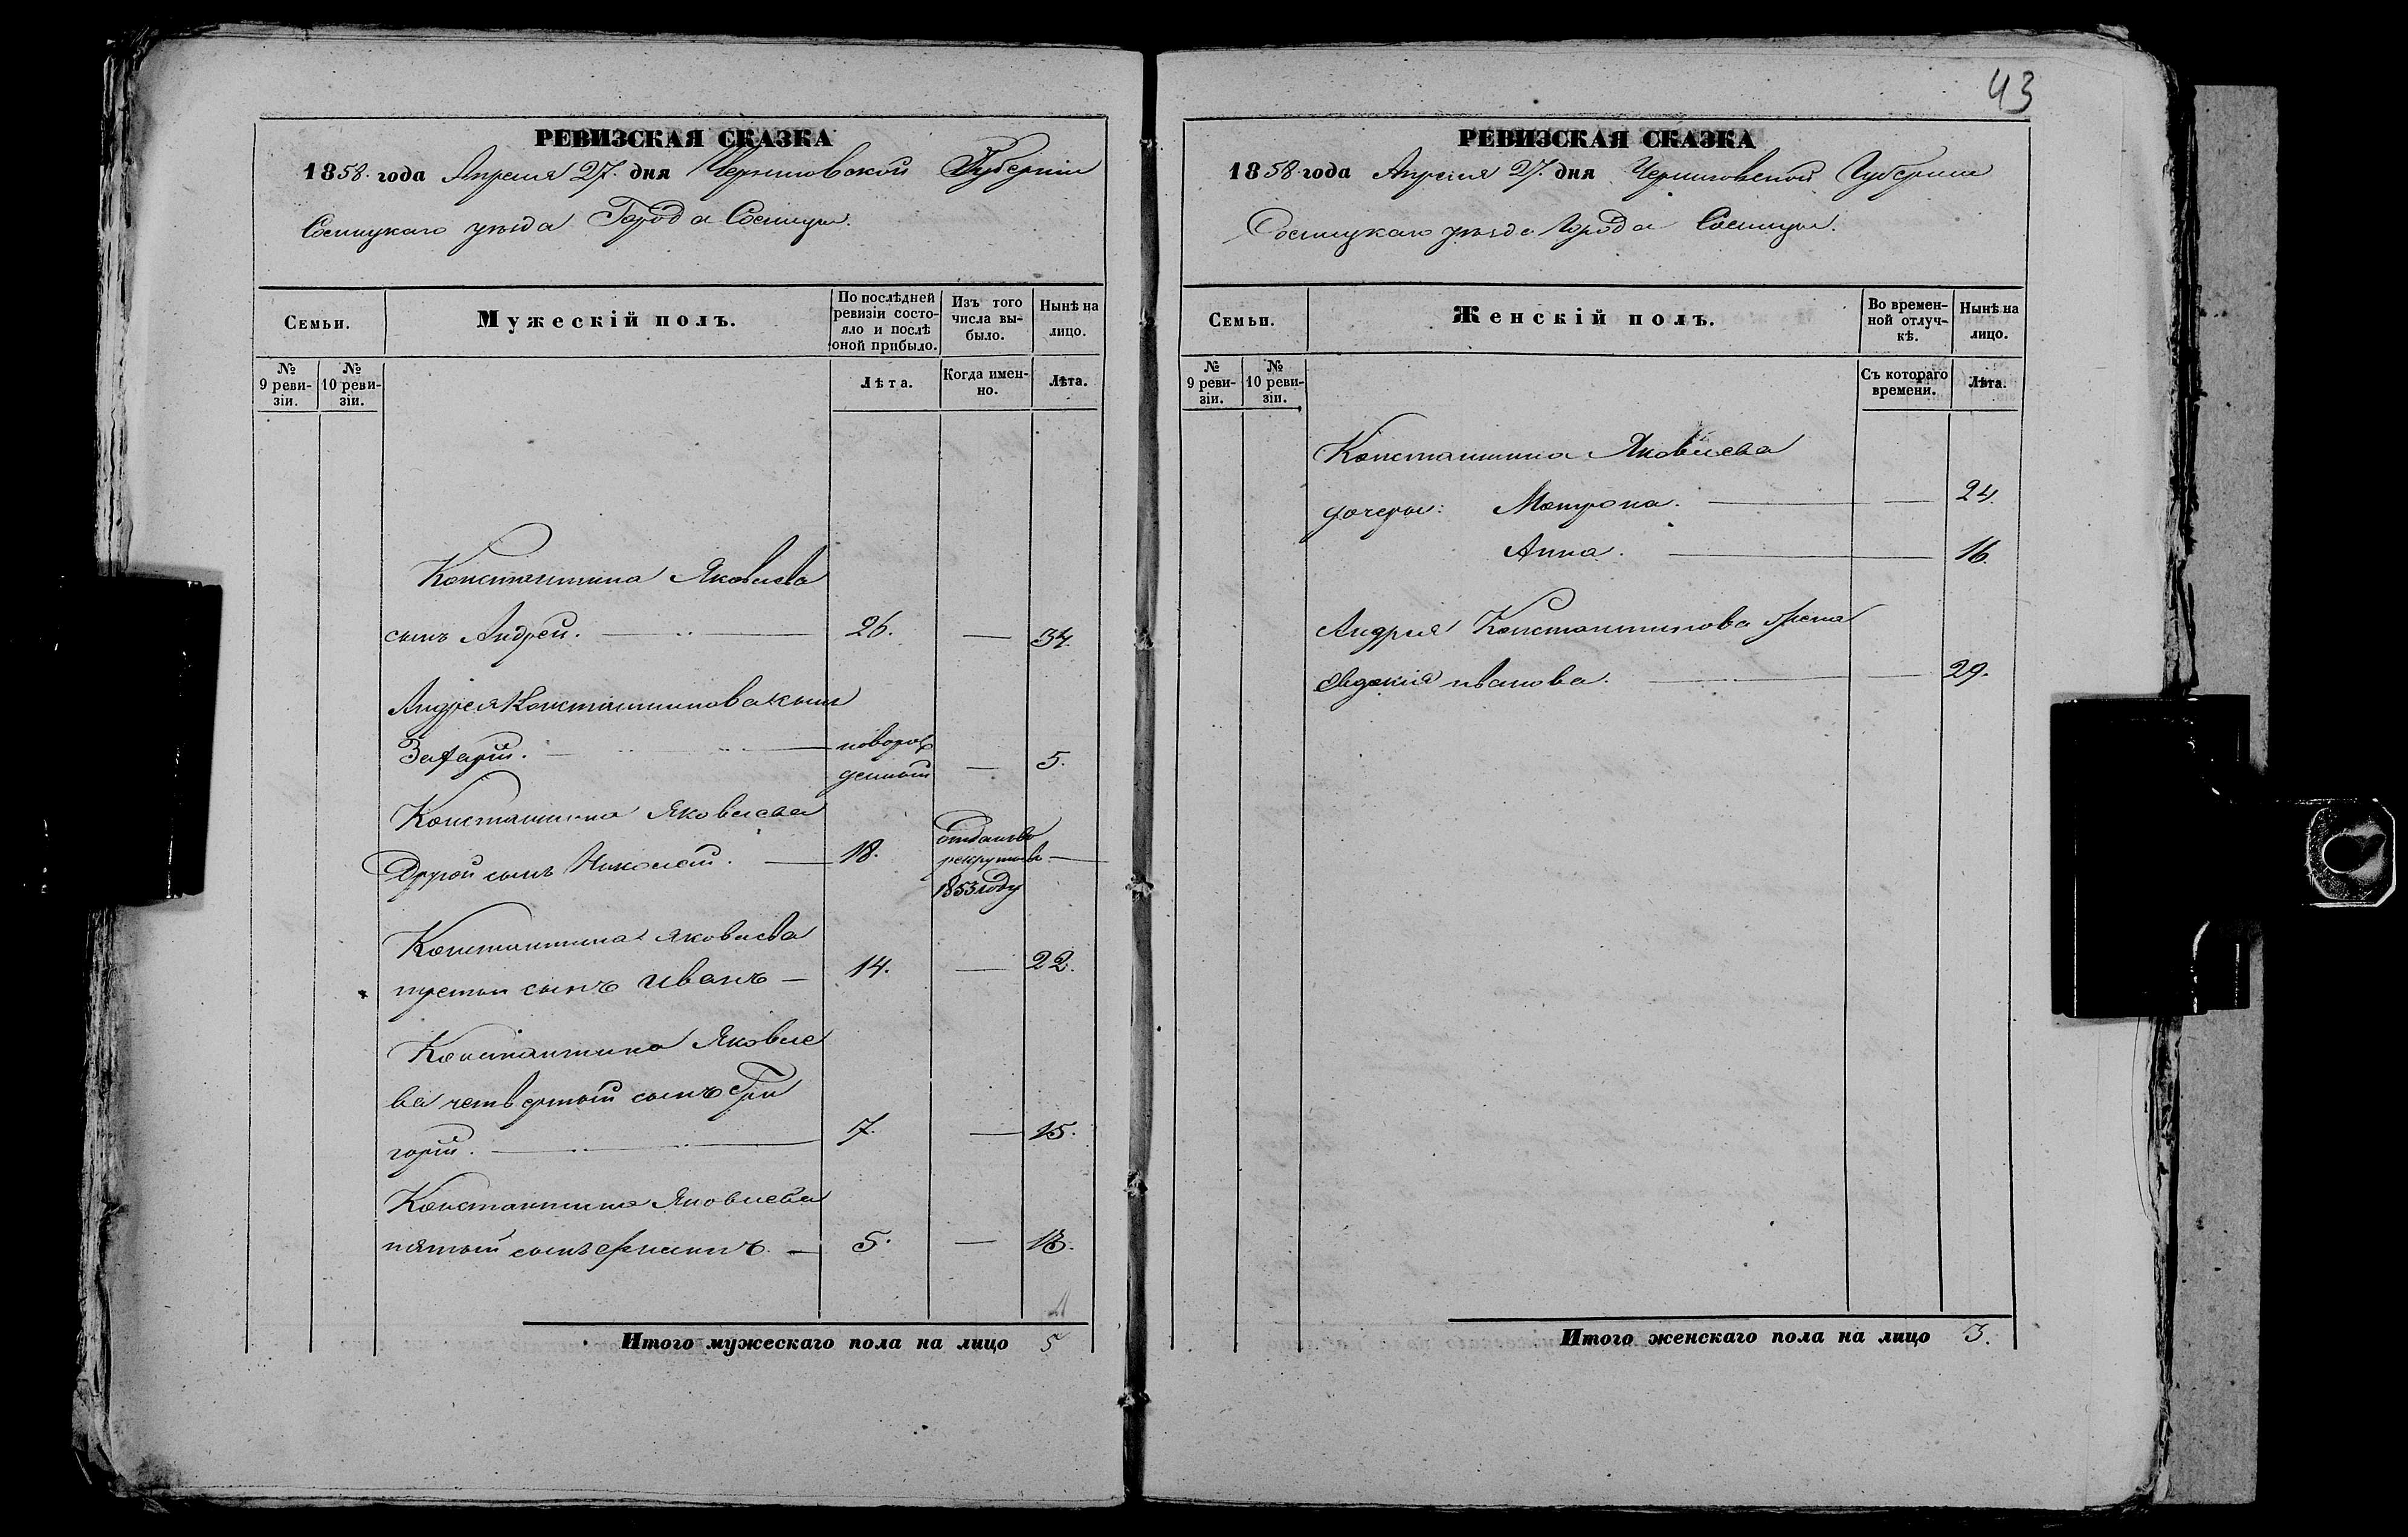 РЕВИЗСКАЯ СКАЗКА
1858. года Апреля 27. дня Черниговской Губерніи
Сосницкаго уезда Города Сосницы.
Семьи.
Мужескій полъ.
По послѣдней ревизіи состояло и послѣ оной прибыло.
Изъ того числа выбыло.
Нынѣ на лицо.
№ 9 ревизіи.
№ 10 ревизіи.
Лѣта.
Когда именно.
Лѣта.
Константина Яковлева
сынъ Андрей. 26. — 34.
Андрея Константинова сынъ
Захарий. новорож
денный — 5.
Константина Яковлева
Другой сынъ Николай. 18. отданъ въ
рекруты въ —
1853 году
Константина Яковлева
третий сынъ Иванъ — 14. — 22.
Константина Яковле
ва четвертый сынъ Гри
горий. 7. — 15.
Константина Яковлева
пятый сынъ Филипъ. — 5. — 13.
4
Итого мужескаго пола на лицо 5
43
РЕВИЗСКАЯ СКАЗКА
1858 года Апреля 27. дня Черниговской Губерніи
Сосницкаго уезда Города Сосницы.
Семьи.
Женскій полъ.
Во временной отлучкѣ.
Нынѣ на лицо.
№ 9 ревизіи.
№ 10 ревизіи.
Съ котораго времени.
Лѣта.
Константина Яковлева
дочери: Матрона. — 24.
Анна. 16.
Андрея Константинова жена
Евдокия Иванова. 29.
Итого женскаго пола на лицо 3.